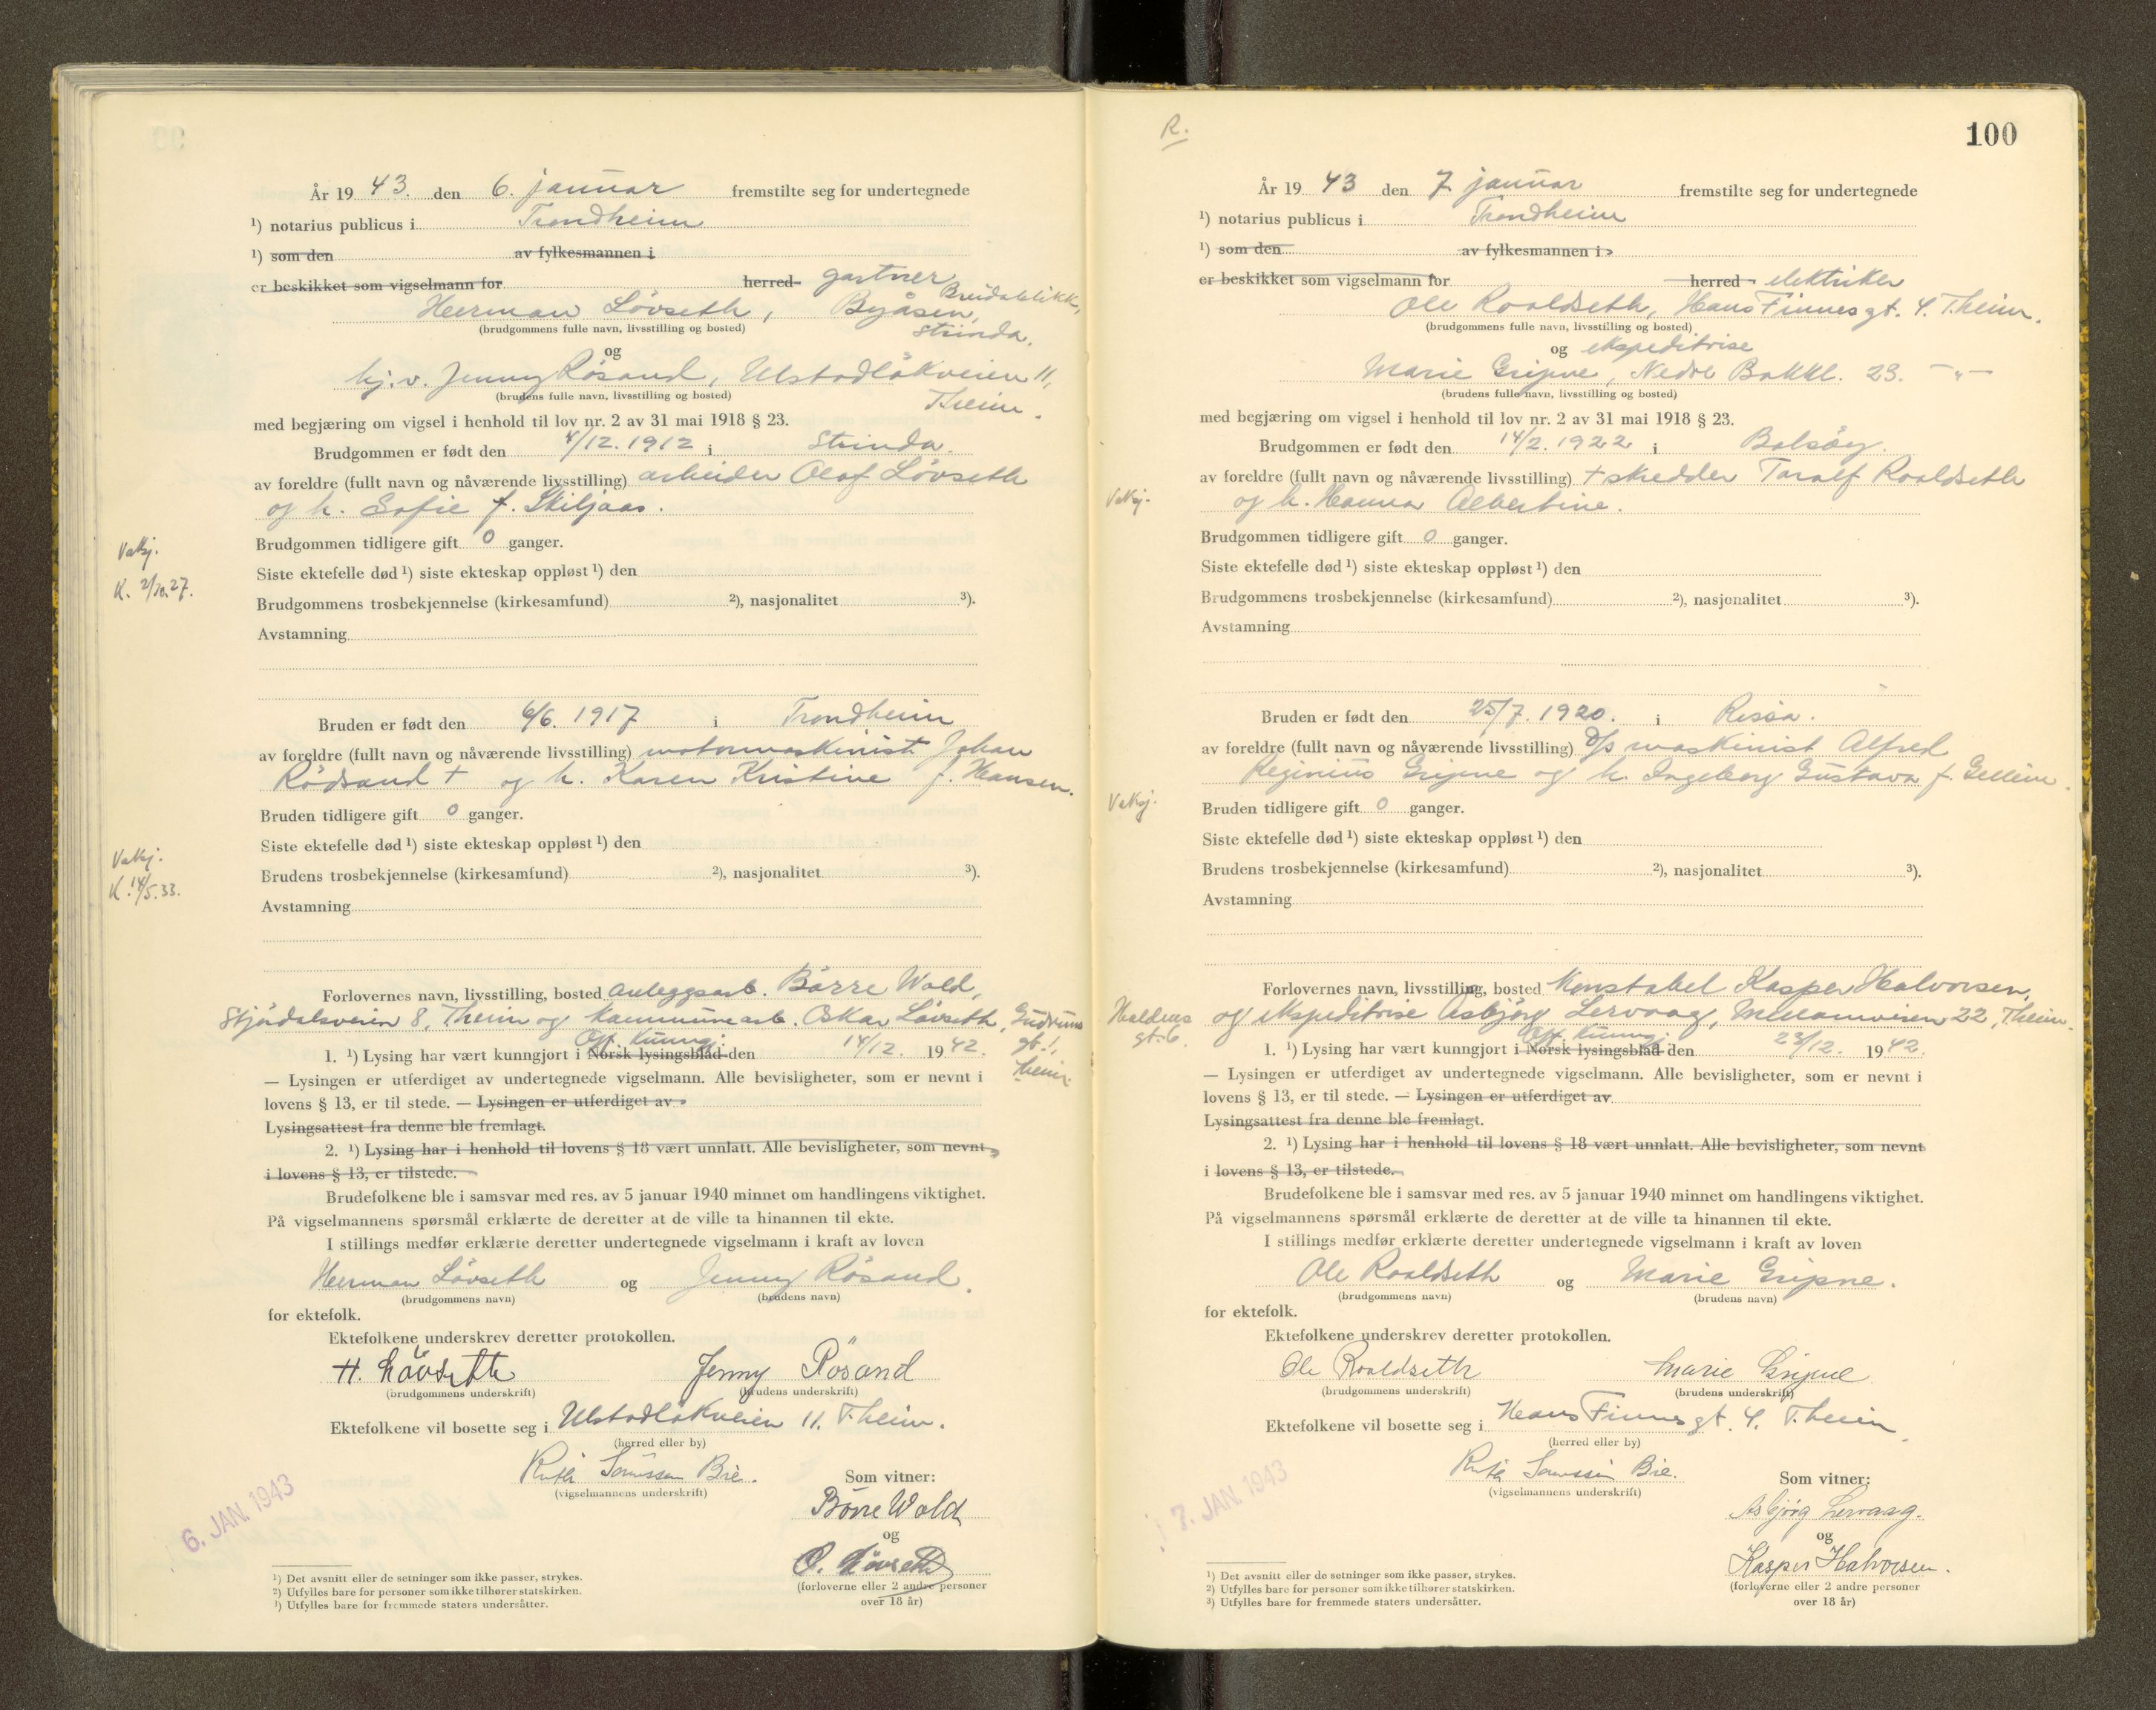 År 19 43. den 6. januar fremstilte seg for undertegnede
¹) notarius publicus i Trondheim
¹) som den av fylkesmannen i
er beskikket som vigselmann for herred gartner
Herman Lövseth, Byåsen,
(brudgommens fulle navn, livsstilling og bosted) Strinda.
og
hj.v. Jenny Rösand, Ulstadlökveien 11,
(brudens fulle navn, livsstilling og bosted) T.heim.
med begjæring om vigsel i henhold til lov nr. 2 av 31 mai 1918 § 23.
Brudgommen er født den 4/12. 1912 i Strinda.
av foreldre (fullt navn og nåværende livsstilling) arbeider Olaf Lövseth
og h. Sofie f. Skiljaas.
Brudgommen tidligere gift 0 ganger.
Vaksj.
Siste ektefelle død ¹) siste ekteskap oppløst ¹) den
K. 2/10.27.
Brudgommens trosbekjennelse (kirkesamfund) ²), nasjonalitet ³).
Avstamning
Bruden er født den 6/6. 1917 i Trondheim
av foreldre (fullt navn og nåværende livsstilling) motormaskinist Johan
Rödsand + og h. Karen Kristine f. Hansen.
Bruden tidligere gift 0 ganger.
Siste ektefelle død ¹) siste ekteskap oppløst ¹) den
Vaksj.
Brudens trosbekjennelse (kirkesamfund) ²), nasjonalitet ³).
K. 14/5.33.
Avstamning
Forlovernes navn, livsstilling, bosted anleggsarb. Börre Wold,
Stjördalsveien 8, T.heim og kommunearb. Oskar Lövseth, Gudruns
gt. 1,
T.heim.
Off. kunngj.
1. ¹) Lysing har vært kunngjort i Norsk lysingsblad den 14/12. 19 42.
— Lysingen er utferdiget av undertegnede vigselmann. Alle bevisligheter, som er nevnt i
lovens § 13, er til stede. — Lysingen er utferdiget av
Lysingsattest fra denne ble fremlagt.
2. ¹) Lysing har i henhold til lovens § 18 vært unnlatt. Alle bevisligheter, som nevnt
i lovens § 13, er tilstede.
Brudefolkene ble i samsvar med res. av 5 januar 1940 minnet om handlingens viktighet.
På vigselmannens spørsmål erklærte de deretter at de ville ta hinannen til ekte.
I stillings medfør erklærte deretter undertegnede vigselmann i kraft av loven
Herman Lövseth og Jenny Rösand.
(brudgommens navn) (brudens navn)
for ektefolk.
Ektefolkene underskrev deretter protokollen.
H. Lövseth Jenny Rösand
(brudgommens underskrift) (brudens underskrift)
Ektefolkene vil bosette seg i Ulstadlökveien 11. T.heim.
(herred eller by)
Ruth Sørnssen Bie.
(vigselmannens underskrift)
Som vitner:
Börre Wold
og
O. Lövseth
(forloverne eller 2 andre personer
over 18 år)
6. JAN. 1943
¹) Det avsnitt eller de setninger som ikke passer, strykes.
²) Utfylles bare for personer som ikke tilhører statskirken.
³) Utfylles bare for fremmede staters undersåtter.
R.
100
År 19 43 den 7. januar fremstilte seg for undertegnede
¹) notarius publicus i Trondheim
¹) som den av fylkesmannen i
er beskikket som vigselmann for herred elektriker
Ole Roaldseth, Hans Finnes gt. 4. T.heim.
(brudgommens fulle navn, livsstilling og bosted)
og ekspeditrise
Marie Gripne, Nedre Bakkl. 23. — " —
(brudens fulle navn, livsstilling og bosted)
med begjæring om vigsel i henhold til lov nr. 2 av 31 mai 1918 § 23.
Brudgommen er født den 14/2. 1922 i Bolsöy.
av foreldre (fullt navn og nåværende livsstilling) + skredder Taralf Roaldseth
Vaksj.
og h. Hanna Albertine.
Brudgommen tidligere gift 0 ganger.
Siste ektefelle død ¹) siste ekteskap oppløst ¹) den
Brudgommens trosbekjennelse (kirkesamfund) ²), nasjonalitet ³).
Avstamning
Bruden er født den 25/7. 1920. i Rissa.
av foreldre (fullt navn og nåværende livsstilling) d/s maskinist Alfred
Reginius Gripne og h. Ingeborg Gustava f. Gellein.
Vaksj.
Bruden tidligere gift 0 ganger.
Siste ektefelle død ¹) siste ekteskap oppløst ¹) den
Brudens trosbekjennelse (kirkesamfund) ²), nasjonalitet ³).
Avstamning
Forlovernes navn, livsstilling, bosted Konstabel Kasper Halvorsen,
gt. 6. og ekspeditrise Asbjörg Lervaag, 22, T.heim.
Off. kunngj.
1. ¹) Lysing har vært kunngjort i Norsk lysingsblad den 23/12. 19 42.
— Lysingen er utferdiget av undertegnede vigselmann. Alle bevisligheter, som er nevnt i
lovens § 13, er til stede. — Lysingen er utferdiget av
Lysingsattest fra denne ble fremlagt.
2. ¹) Lysing har i henhold til lovens § 18 vært unnlatt. Alle bevisligheter, som nevnt
i lovens § 13, er tilstede.
Brudefolkene ble i samsvar med res. av 5 januar 1940 minnet om handlingens viktighet.
På vigselmannens spørsmål erklærte de deretter at de ville ta hinannen til ekte.
I stillings medfør erklærte deretter undertegnede vigselmann i kraft av loven
Ole Roaldseth og Marie Gripne.
(brudgommens navn) (brudens navn)
for ektefolk.
Ektefolkene underskrev deretter protokollen.
Ole Roaldseth Marie Gripne
(brudgommens underskrift) (brudens underskrift)
Ektefolkene vil bosette seg i Hans Finnes gt. 4. T.heim.
(herred eller by)
Ruth Bie.
(vigselmannens underskrift)
Som vitner:
Asbjörg Lervaag.
og
Kasper Halvorsen.
(forloverne eller 2 andre personer
over 18 år)
7. JAN. 1943
¹) Det avsnitt eller de setninger som ikke passer, strykes.
²) Utfylles bare for personer som ikke tilhører statskirken.
³) Utfylles bare for fremmede staters undersåtter.